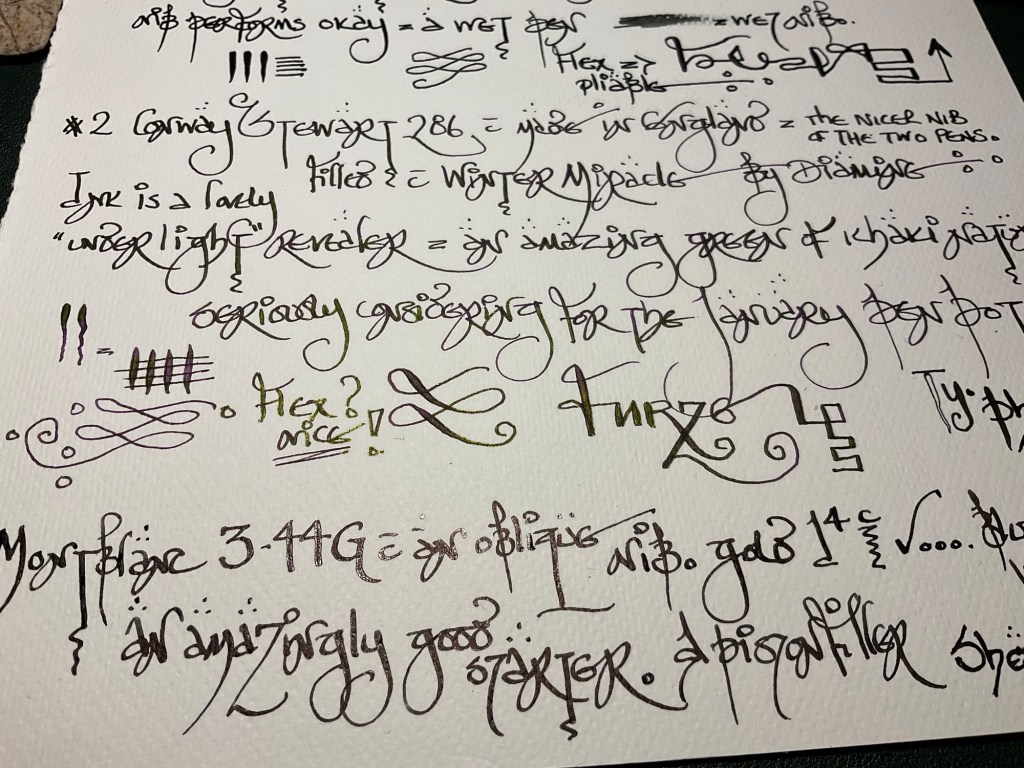 nib performs okay = a wet pen = wet nib.
Flex => pliable
*2 Conway Stewart 286. = made in England = the nicer nib
of the two pens.
Filled = Winter Miracle by Diamine
Ink is a lovely
"under light" revealer = an amazing green of khaki
seriously considering for the January pen pot
Flex?
nice!
Montblanc 3-44G = an oblique nib. gold 14c ✓....
an amazingly good starter. A pistonfiller